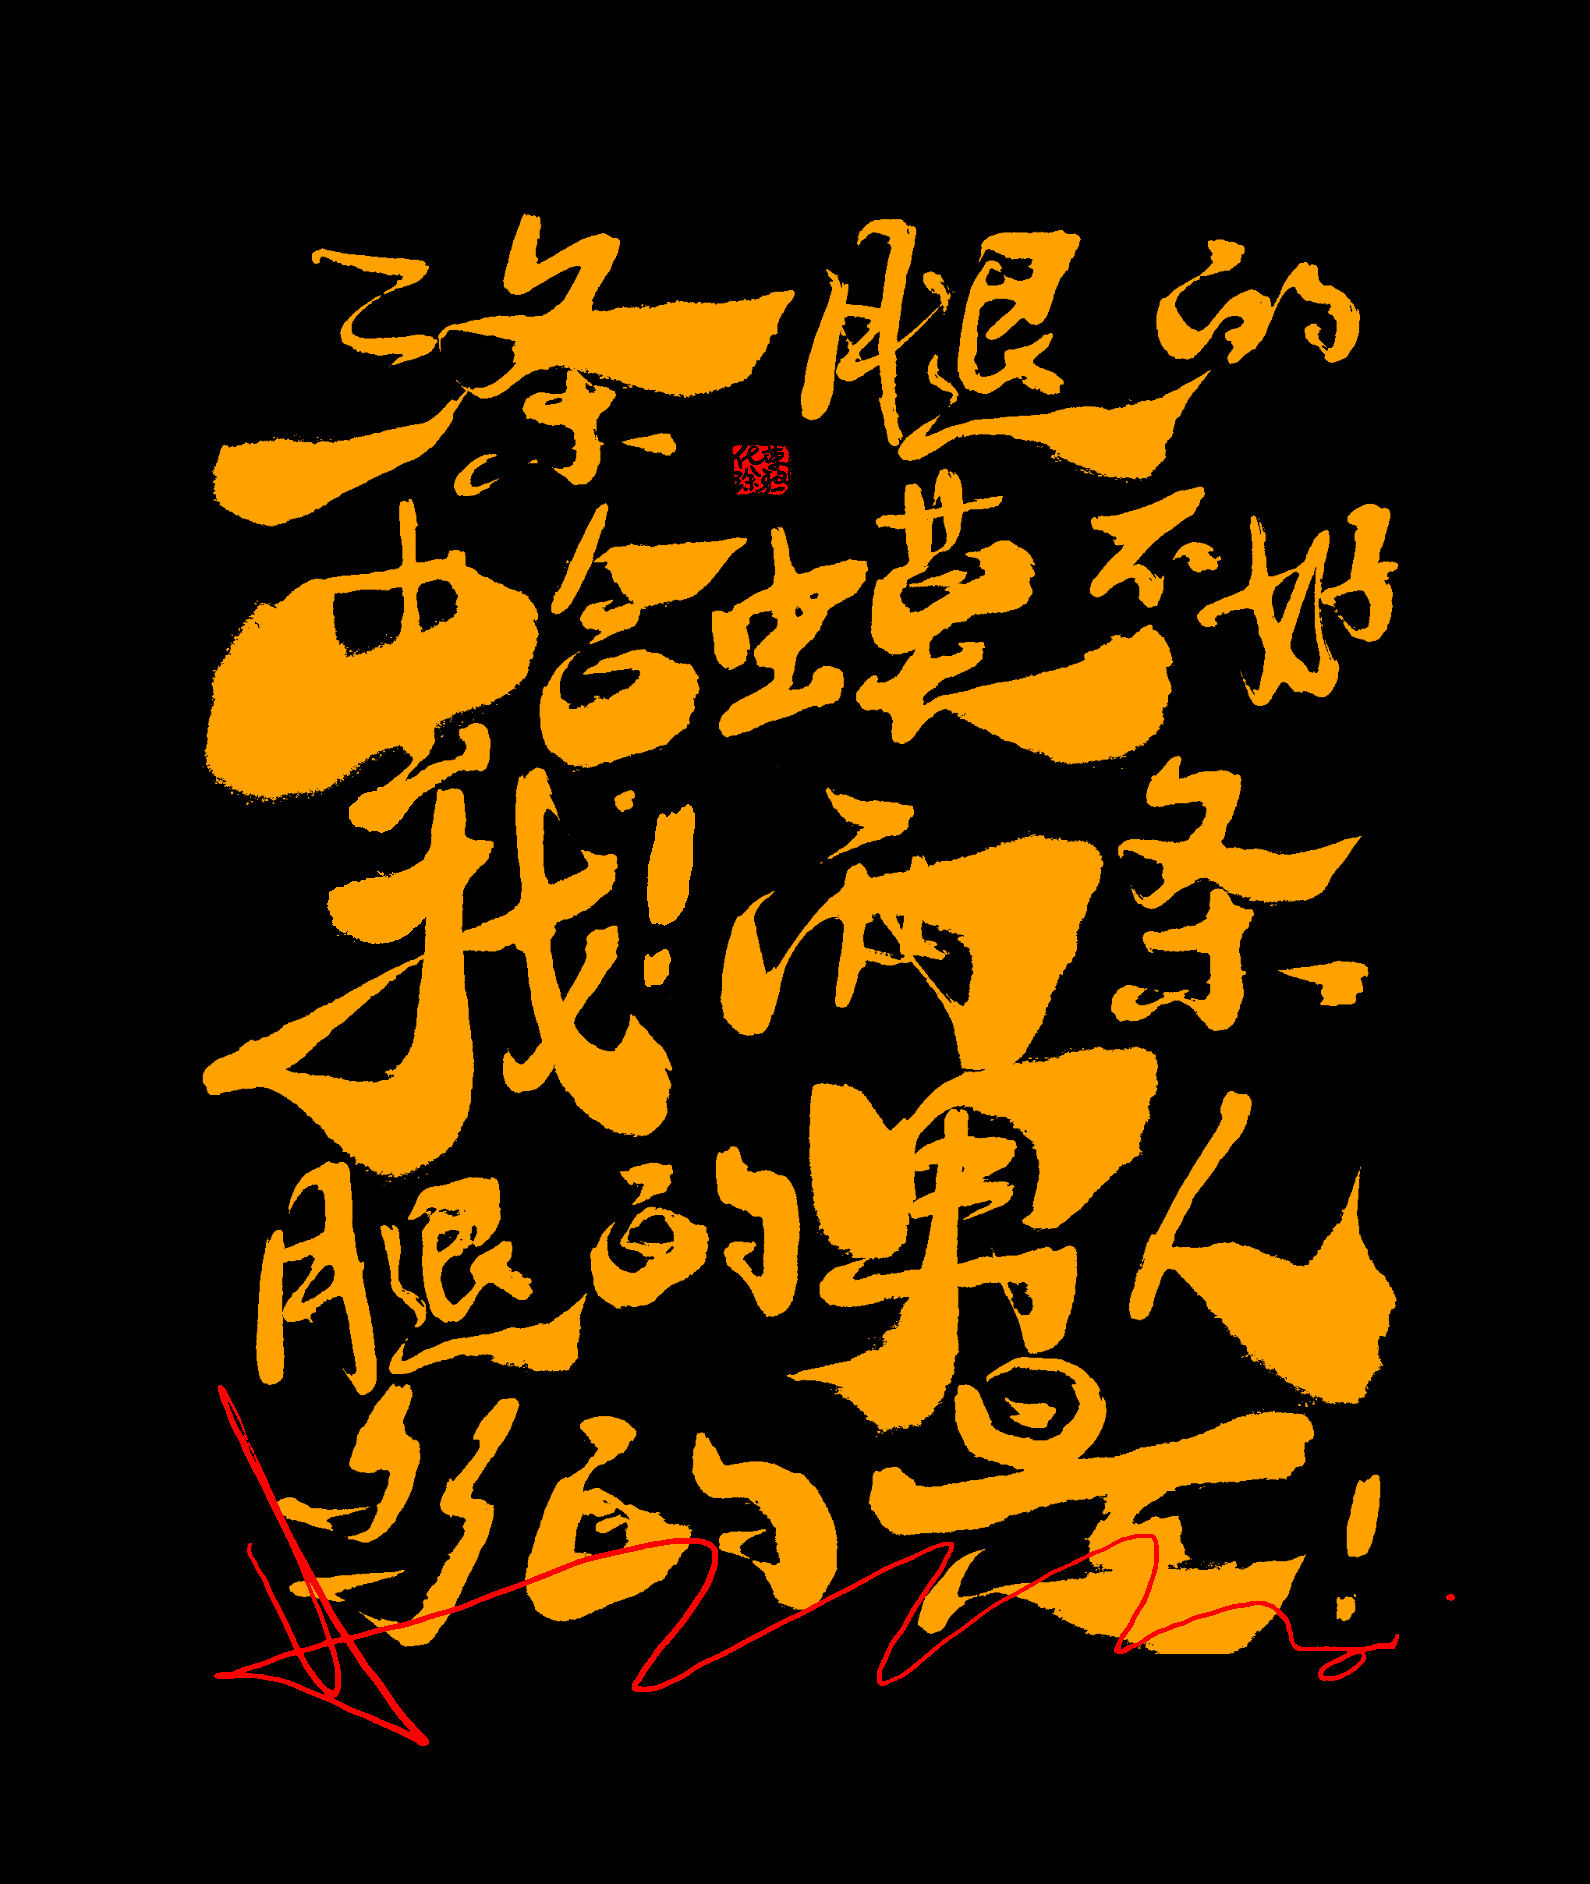 三条腿的
蛤蟆不好
找！两条
腿的男人
多的是！